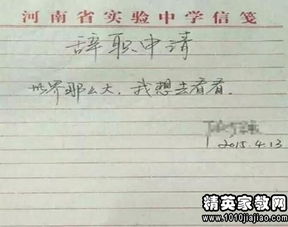 河南省实验中学信笺
辞职申请
世界那么大，我想去看看。
2015.4.13
精英家教网
www.1010jiajiao.com